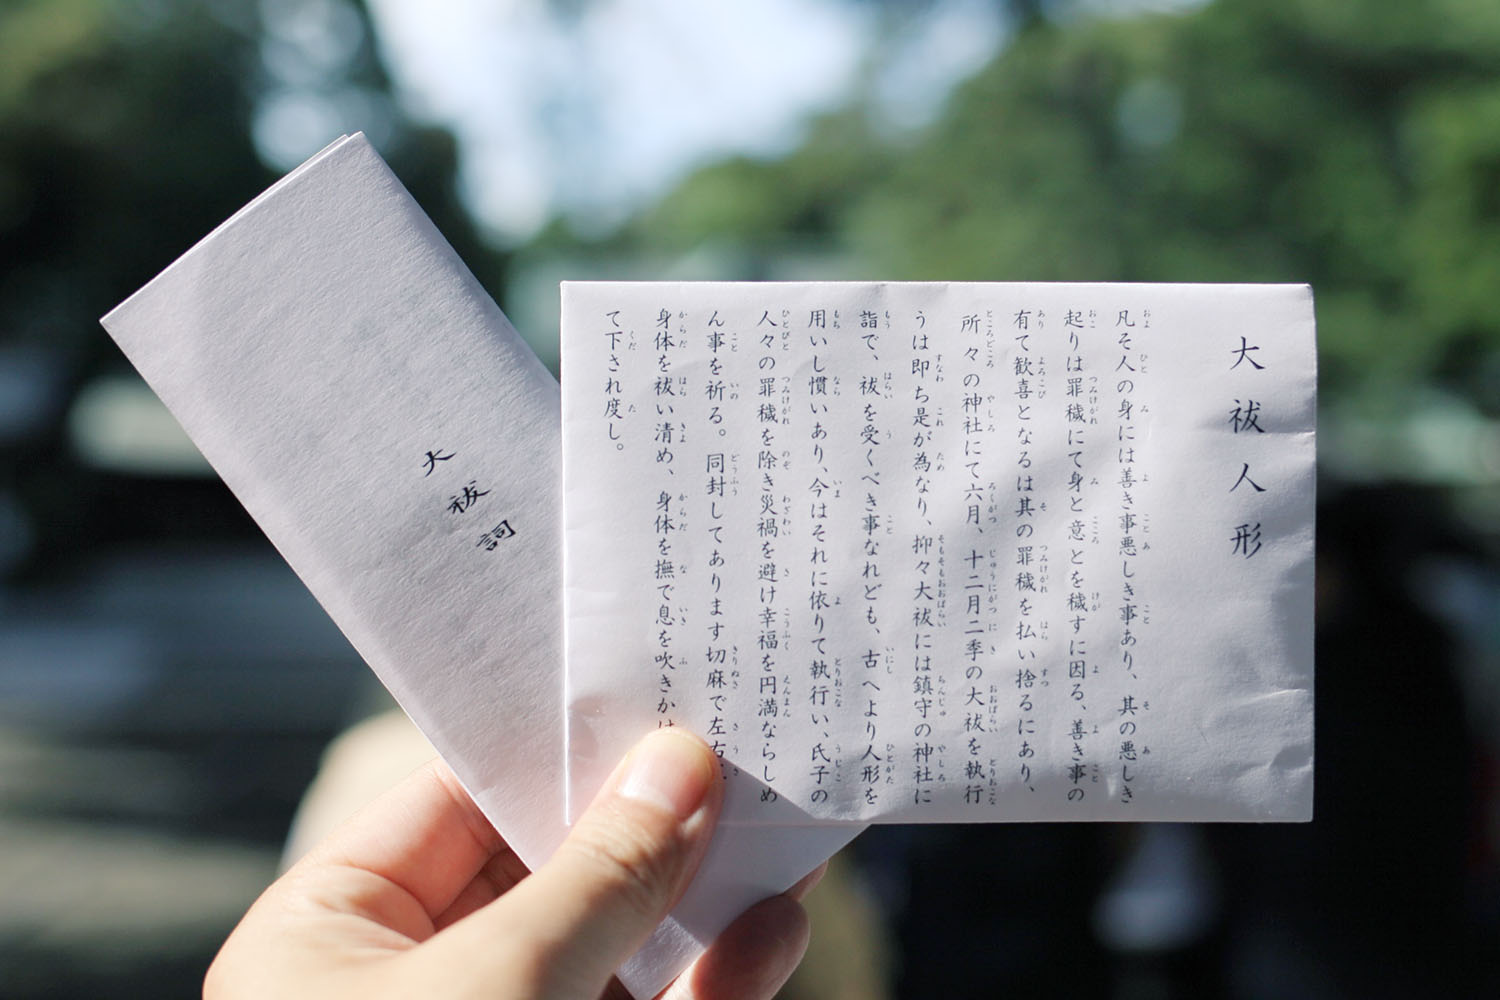 大祓人形
凡そ人の身には善き事悪しき事あり、其の悪しき
起りは罪穢にて身と意とを穢すに因る、善き事の
有て歓喜となるは其の罪穢を払い捨るにあり、
所々の神社にて六月、十二月二季の大祓を執行
うは即ち是が為なり、抑々大祓には鎮守の神社に
詣で、祓を受くべき事なれども、古へより人形を
用いし慣いあり、今はそれに依りて執行い、氏子の
人々の罪穢を除き災禍を避け幸福を円満ならしめ
ん事を祈る。同封してあります切麻で左右に
身体を祓い清め、身体を撫で息を吹きかけ
て下され度し。
大祓詞